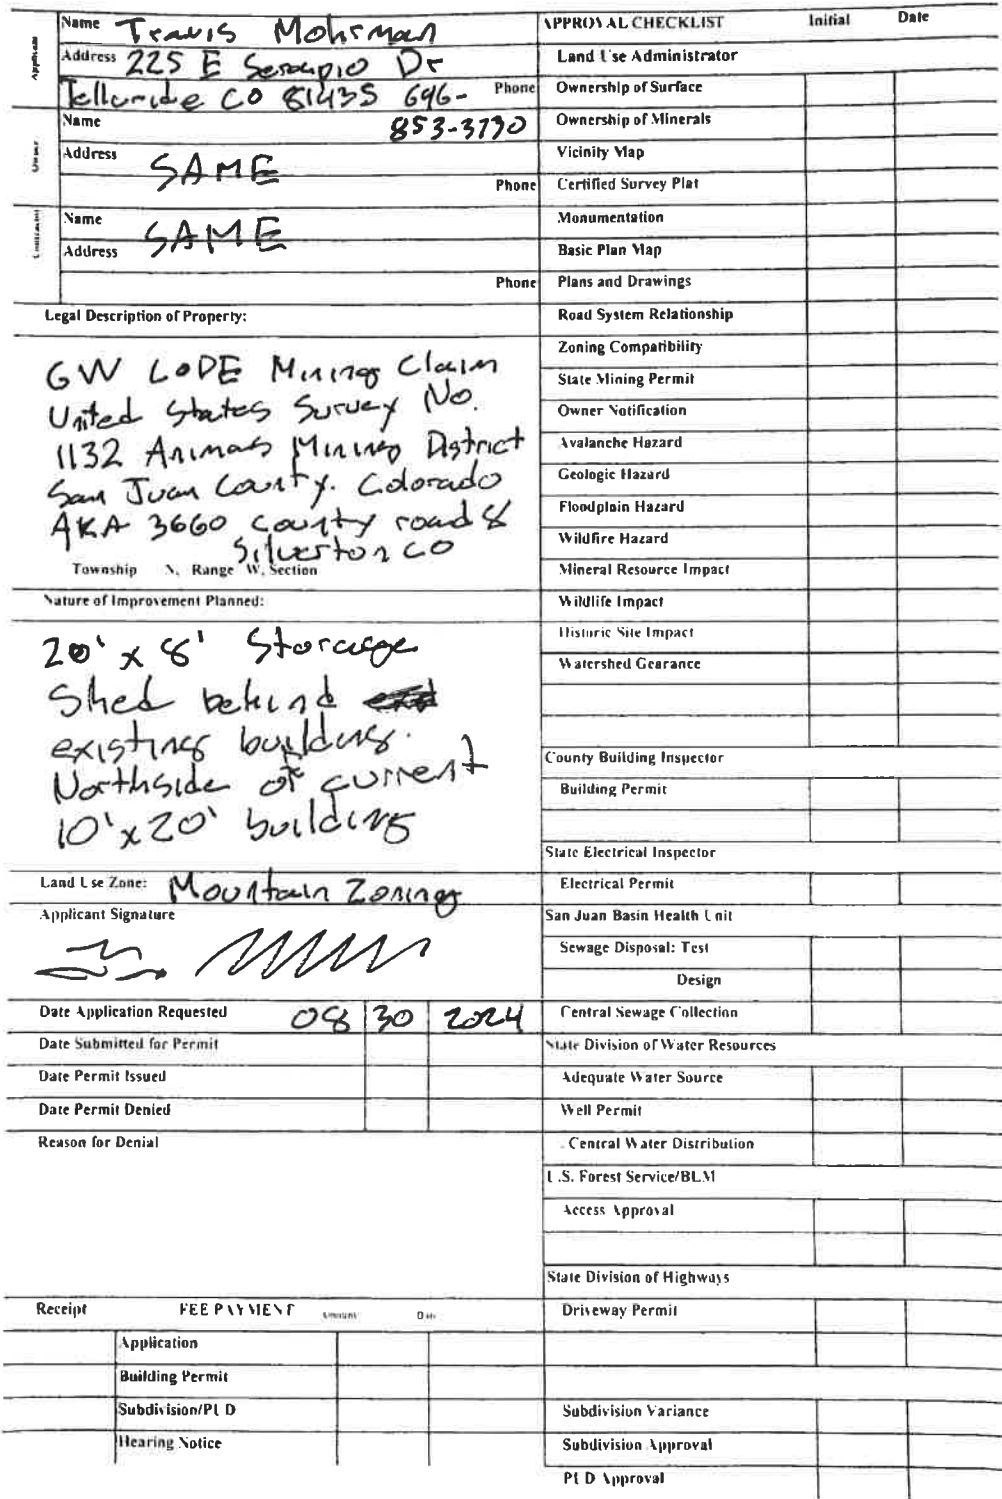 Applicant
Name Travis Mohrman
Address 225 E Serapio Dr
Telluride CO 81435 646- Phone
853-3730
Owner
Name
Address SAME
Phone
Contractor
Name SAME
Address
Phone
Legal Description of Property:
GW LODE Mining Claim
United States Survey No.
1132 Animas Mining District
San Juan County. Colorado
AKA 3660 county road 8
Silverton CO
Township N, Range W, Section
Nature of Improvement Planned:
20' x 8' Storage
Shed behind
existing building.
Northside of current
10'x20' building
Land Use Zone: Mountain Zoning
Applicant Signature
Date Application Requested 08 30 2024
Date Submitted for Permit
Date Permit Issued
Date Permit Denied
Reason for Denial
Receipt FEE PAYMENT Amount Date
Application
Building Permit
Subdivision/PUD
Hearing Notice
APPROVAL CHECKLIST Initial Date
Land Use Administrator
Ownership of Surface
Ownership of Minerals
Vicinity Map
Certified Survey Plat
Monumentation
Basic Plan Map
Plans and Drawings
Road System Relationship
Zoning Compatibility
State Mining Permit
Owner Notification
Avalanche Hazard
Geologic Hazard
Floodplain Hazard
Wildfire Hazard
Mineral Resource Impact
Wildlife Impact
Historic Site Impact
Watershed Gearance
County Building Inspector
Building Permit
State Electrical Inspector
Electrical Permit
San Juan Basin Health Unit
Sewage Disposal: Test
Design
Central Sewage Collection
State Division of Water Resources
Adequate Water Source
Well Permit
Central Water Distribution
U.S. Forest Service/BLM
Access Approval
State Division of Highways
Driveway Permit
Subdivision Variance
Subdivision Approval
PUD Approval